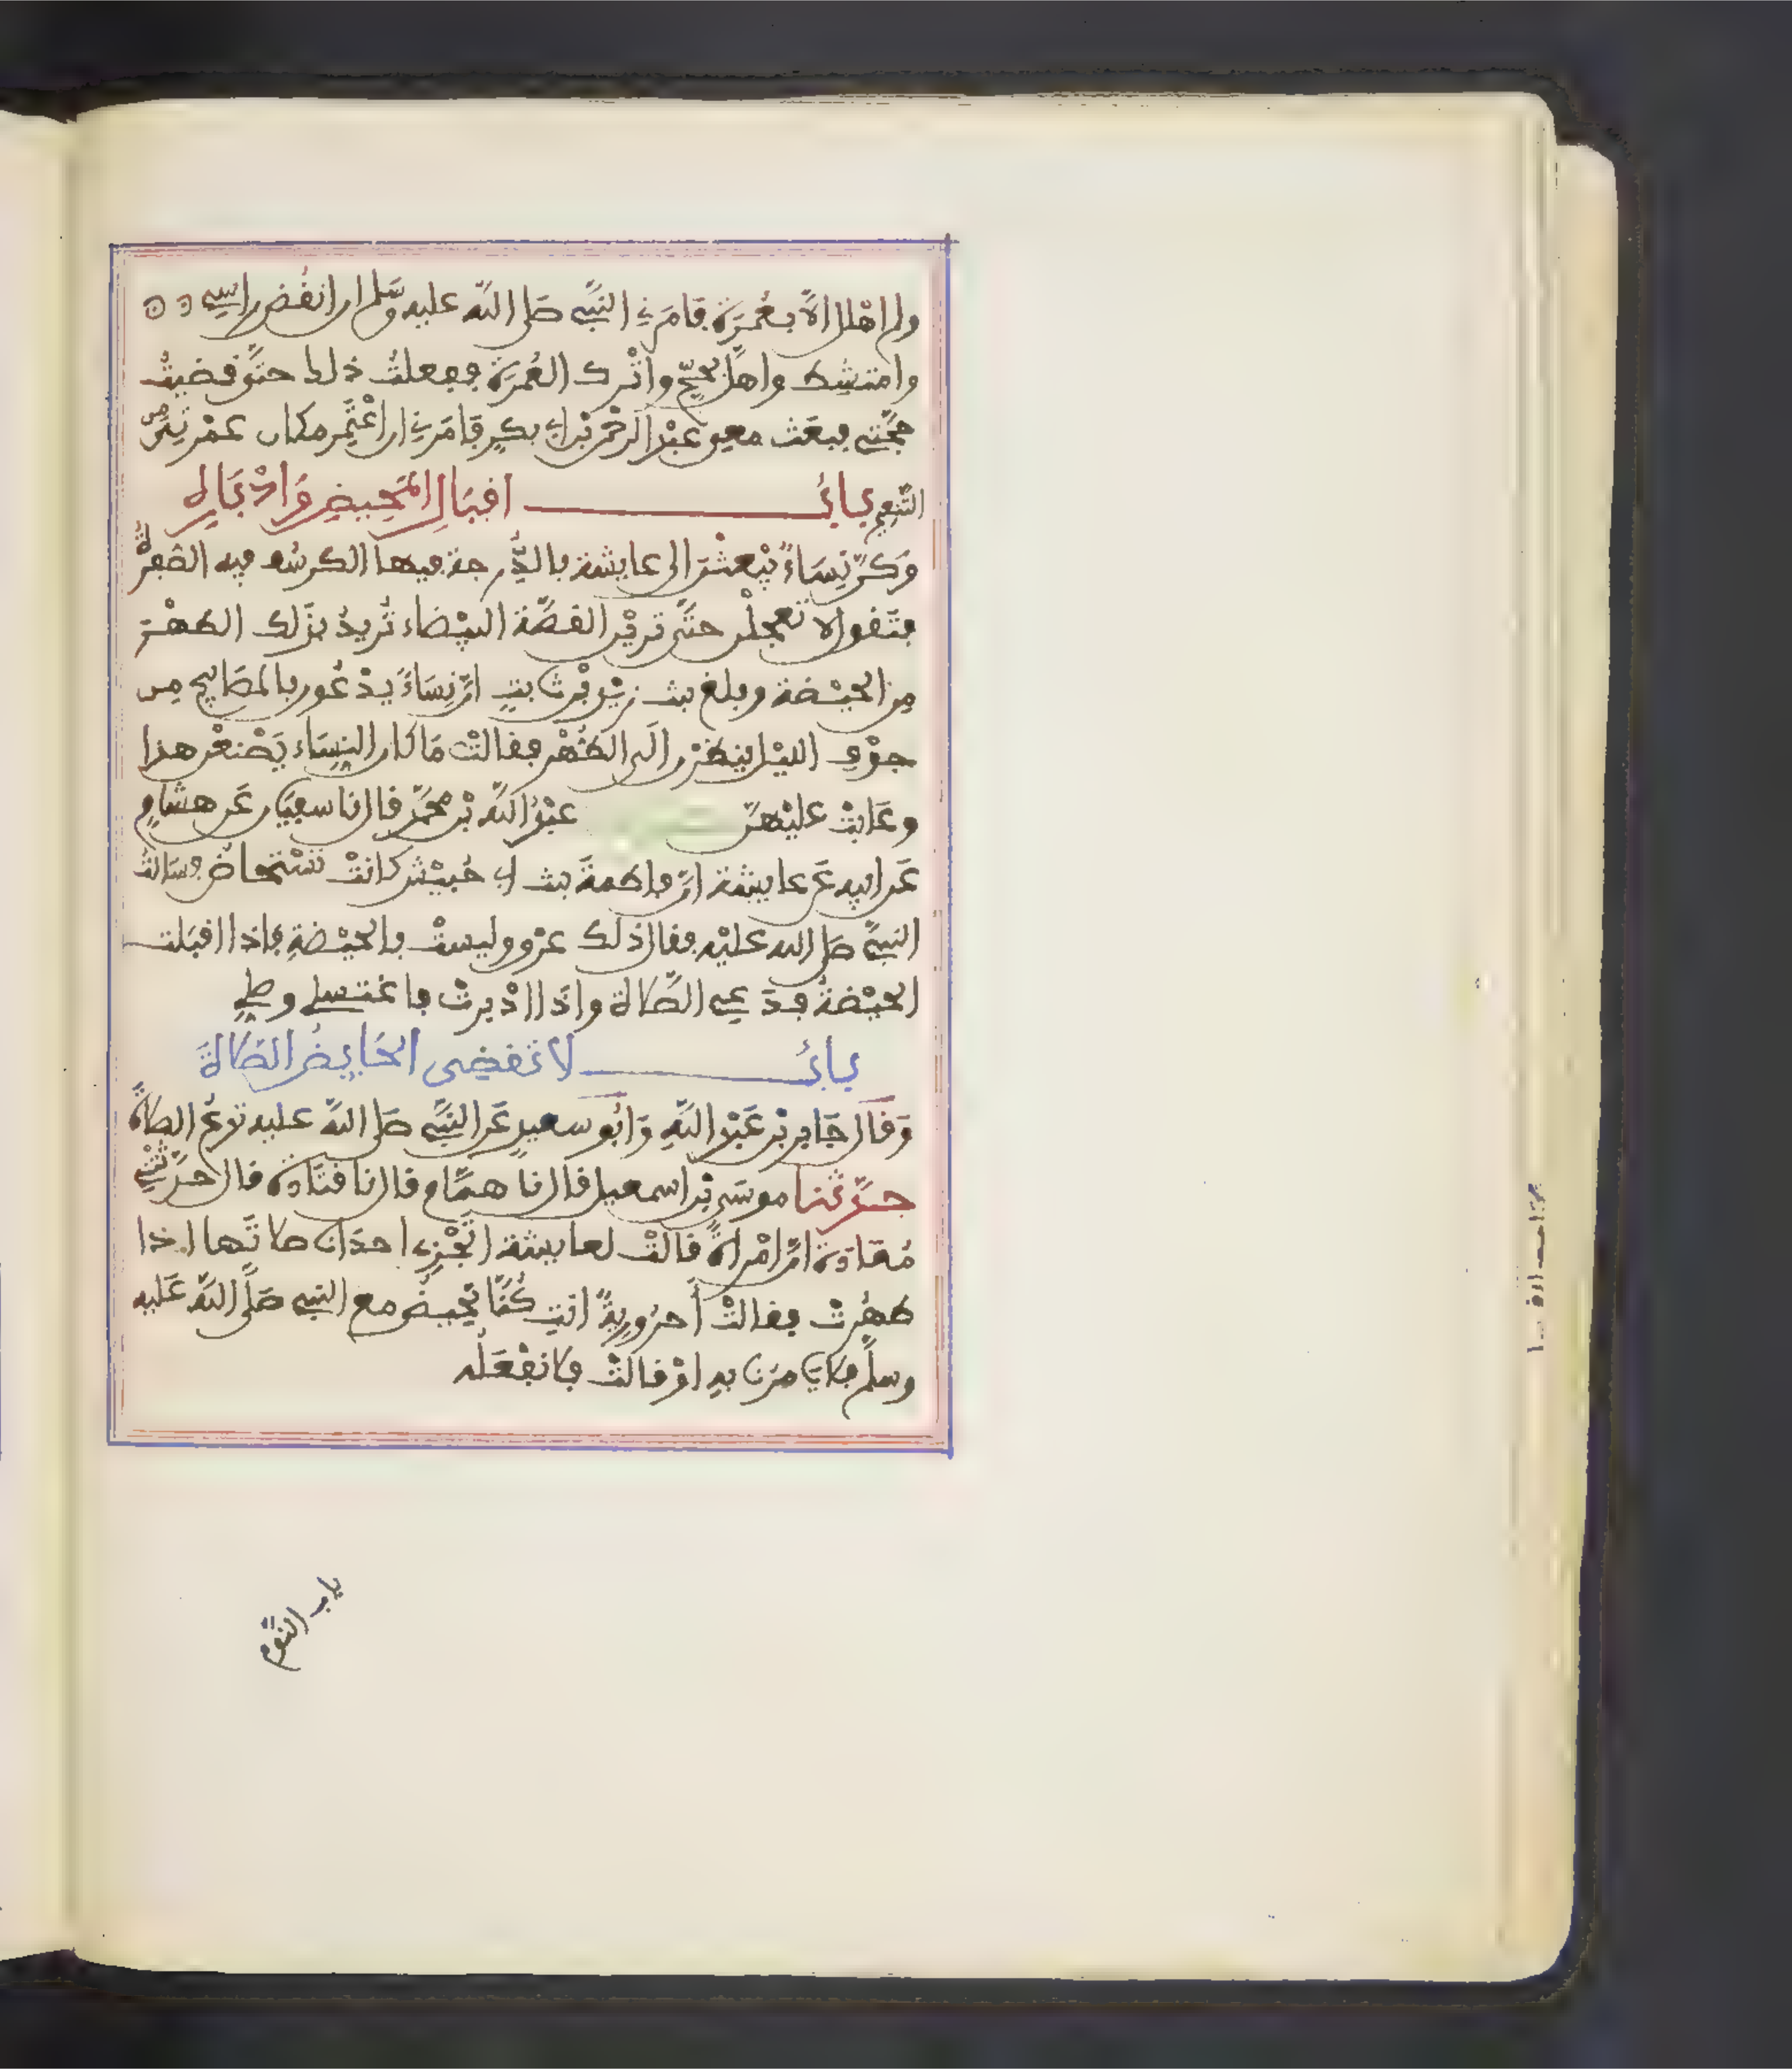 ولم اهلل الا بعمرة فامرني النبي صلى الله عليه وسلم ان انقض راسي
وامتشط واهل بحج واترك العمرة ففعلت ذلك حتى قضيت
حجتي فبعث معي عبد الرحمن بن ابي بكر فامرني ان اعتمر مكان عمرتي من
التنعيم باب اقبال المحيض وادباره
وكن نساء يبعثن الى عايشة بالدرجة فيها الكرسف فيه الصفرة
فتقول لا تعجلن حتى ترين القصة البيضاء تريد بذلك الطهر
من الحيضة وبلغ بنت زيد بن ثابت ان نساء يدعون بالمصابيح من
جوف الليل ينظرن الى الطهر فقالت ما كان النساء يصنعن هذا
وعابت عليهن عبد الله بن محمد قال نا سفيان عن هشام
عن ابيه عن عايشة ان فاطمة بنت ابي حبيش كانت تستحاض فسالت
النبي صلى الله عليه فقال ذلك عرق وليست بالحيضة فاذا اقبلت
الحيضة فدعي الصلاة واذا ادبرت فاغتسلي وصلي
باب لا تقضى الحايض الصلاة
وقال جابر بن عبد الله وابو سعيد عن النبي صلى الله عليه تدع الصلاة
حدثنا موسى بن اسمعيل قال نا همام قال نا قتادة قال حدثتني
معاذة ان امراة قالت لعايشة اتجزي احدانا صلاتها اذا
طهرت فقالت أحرورية انت كنا نحيض مع النبي صلى الله عليه
وسلم فلا يامرنا به او قالت فلا نفعله
باب النوم